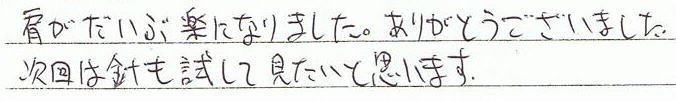 肩がだいぶ楽になりました。ありがとうございました。
次回は針も試して見たいと思います.